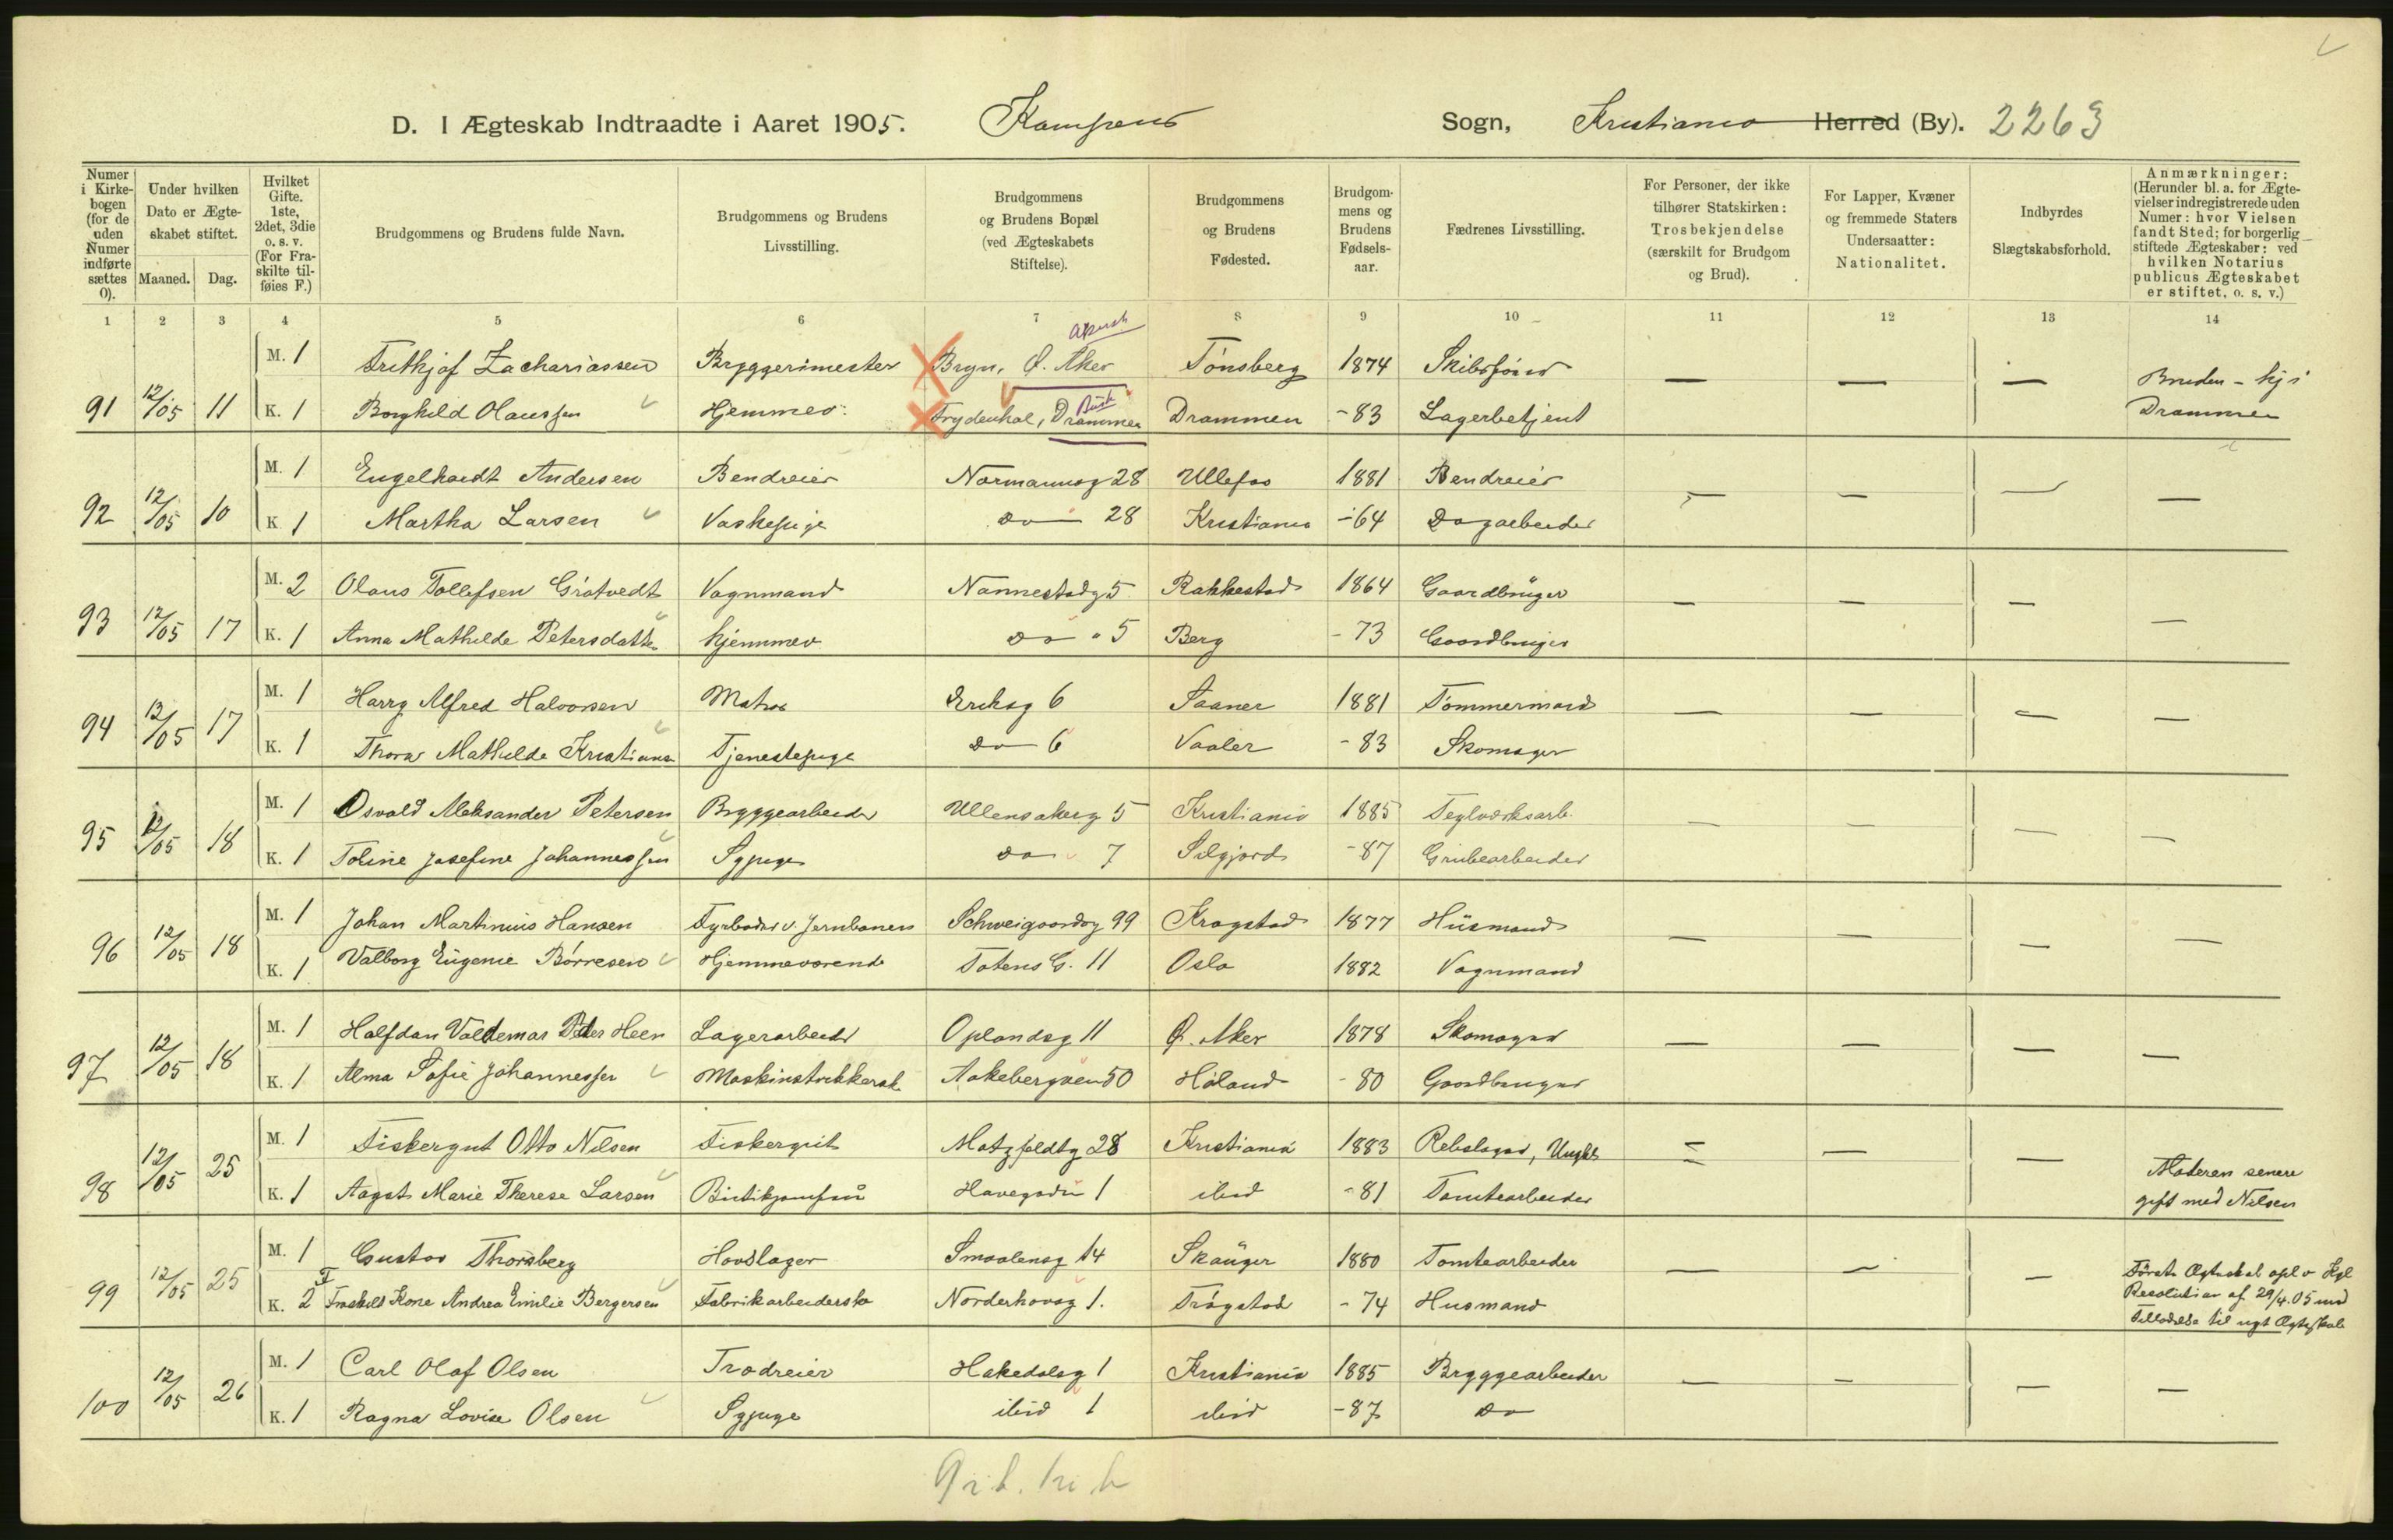 D. I Ægteskab Indtraadte i Aaret 1905. Kampens Sogn, Kristiania Herred (By). 2263
Numer i Kirkebogen (for de uden Numer indførte sættes 0).
Under hvilken Dato er Ægteskabet stiftet. Maaned. Dag.
Hvilket Gifte. 1ste, 2det, 3die o. s. v. (For Fraskilte tilføies F.)
Brudgommens og Brudens fulde Navn.
Brudgommens og Brudens Livsstilling.
Brudgommens og Brudens Bopæl (ved Ægteskabets Stiftelse).
Brudgommens og Brudens Fødested.
Brudgommens og Brudens Fødselsaar.
Fædrenes Livsstilling.
For Personer, der ikke tilhører Statskirken: Trosbekjendelse (særskilt for Brudgom og Brud).
For Lapper, Kvæner og fremmede Staters Undersaatter: Nationalitet.
Indbyrdes Slægtskabsforhold.
Anmærkninger: (Herunder bl. a. for Ægtevielser indregistrerede uden Numer: hvor Vielsen fandt Sted; for borgerlig stiftede Ægteskaber: ved hvilken Notarius publicus Ægteskabet er stiftet, o. s. v.)
1 2 3 4 5 6 7 8 9 10 11 12 13 14
M. 1 Frithjof Zachariassen Bryggerimester Bryn, Ø. Aker Tönsberg 1874 Skibsförer — — — Bruden - hj i
91 12/05 11 K. 1 Borghild Olaussen Hjemmev. Frydenhal, Drammen Drammen -83 Lagerbetjent Drammen
M. 1 Engelhardt Andersen Bendreier Normannsg 28 Ullefos 1881 Bendreier — — — —
92 12/05 10 K. 1 Martha Larsen Vaskepige do — 28 Kristiania -64 Dagarbeider
M. 2 Olaus Tollefsen Grötvedt Vognmand Nannestadg 5 Rakkestad 1864 Gaardbruger — — — —
93 12/05 17 K. 1 Anna Mathilde Petersdatter hjemmev do " 5 Berg -73 Gaardbruger
M. 1 Harry Alfred Halvorsen Matros Eriksg 6 Saaner 1881 Tömmermand — — — —
94 12/05 17 K. 1 Thora Mathilde Kristians Tjenestepige do — 6 Vaaler -83 Skomager
M. 1 Osvald Aleksander Petersen Bryggearbeider Ullensakerg 5 Kristiania 1885 Teglverksarb. — — — —
95 12/05 18 K. 1 Toline Josefine Johannessen Sypige do 7 Silgjord -87 Grubearbeider
M. 1 Johan Martinius Hansen Fyrböder v. Jernbanen Schweigaardsg 99 Kragstad 1877 Husmand — — — —
96 12/05 18 K. 1 Valborg Eugenie Börresen Hjemmeværende Totens G. 11 Oslo 1882 Vognmand
M. 1 Halfdan Valdemar Peder Heen Lagerarbeider Oplandsg 11 Ø. Aker 1878 Skomager — — — —
97 12/05 18 K. 1 Alma Sofie Johannessen Maskinstrikkersk Aakebergvein 50 Höland -80 Gaardbruger
M. 1 Fiskergut Otto Nilsen Fiskergut Motzfeldtg 28 Kristiania 1883 Rebslager, Ungk. — — —
98 12/05 25 K. 1 Aagot Marie Therese Larsen Butikjomfru Havegaden 1 ibid -81 Tomtearbeider Moderen senere
gift med Nilsen
M. 1 Gustav Thorsberg Hovslager Smaalensg 14 Skauger 1880 Tomtearbeider — — —
99 12/05 25 K. 2 F Fraskilt Kone Andrea Emilie Bergersen Fabrikarbeiderske Norderhovsg 1. Trögstad -74 Husmand Förste Ægteskab opl v Kgl
Resolution af 29/4.05 med
Tilladelse til nyt Ægteskab
M. 1 Carl Olaf Olsen Trædreier Hakedalsg 1 Kristiania 1885 Bryggearbeider — — — —
100 12/05 26 K. 1 Ragna Lovise Olsen Sypige ibid 1 ibid -87 Do